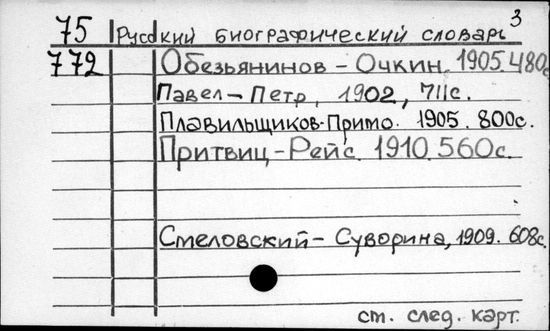 3
75 Русский биографический словарь
772 Обезьянинов - Очкин. 1905. 480с
Павел - Петр, 1902, 711с.
Плавильщиков-Примо. 1905. 800с.
Притвиц-Рейс. 1910. 560с.
Смеловский - Суворина, 1909. 608с.
ст. след. карт.